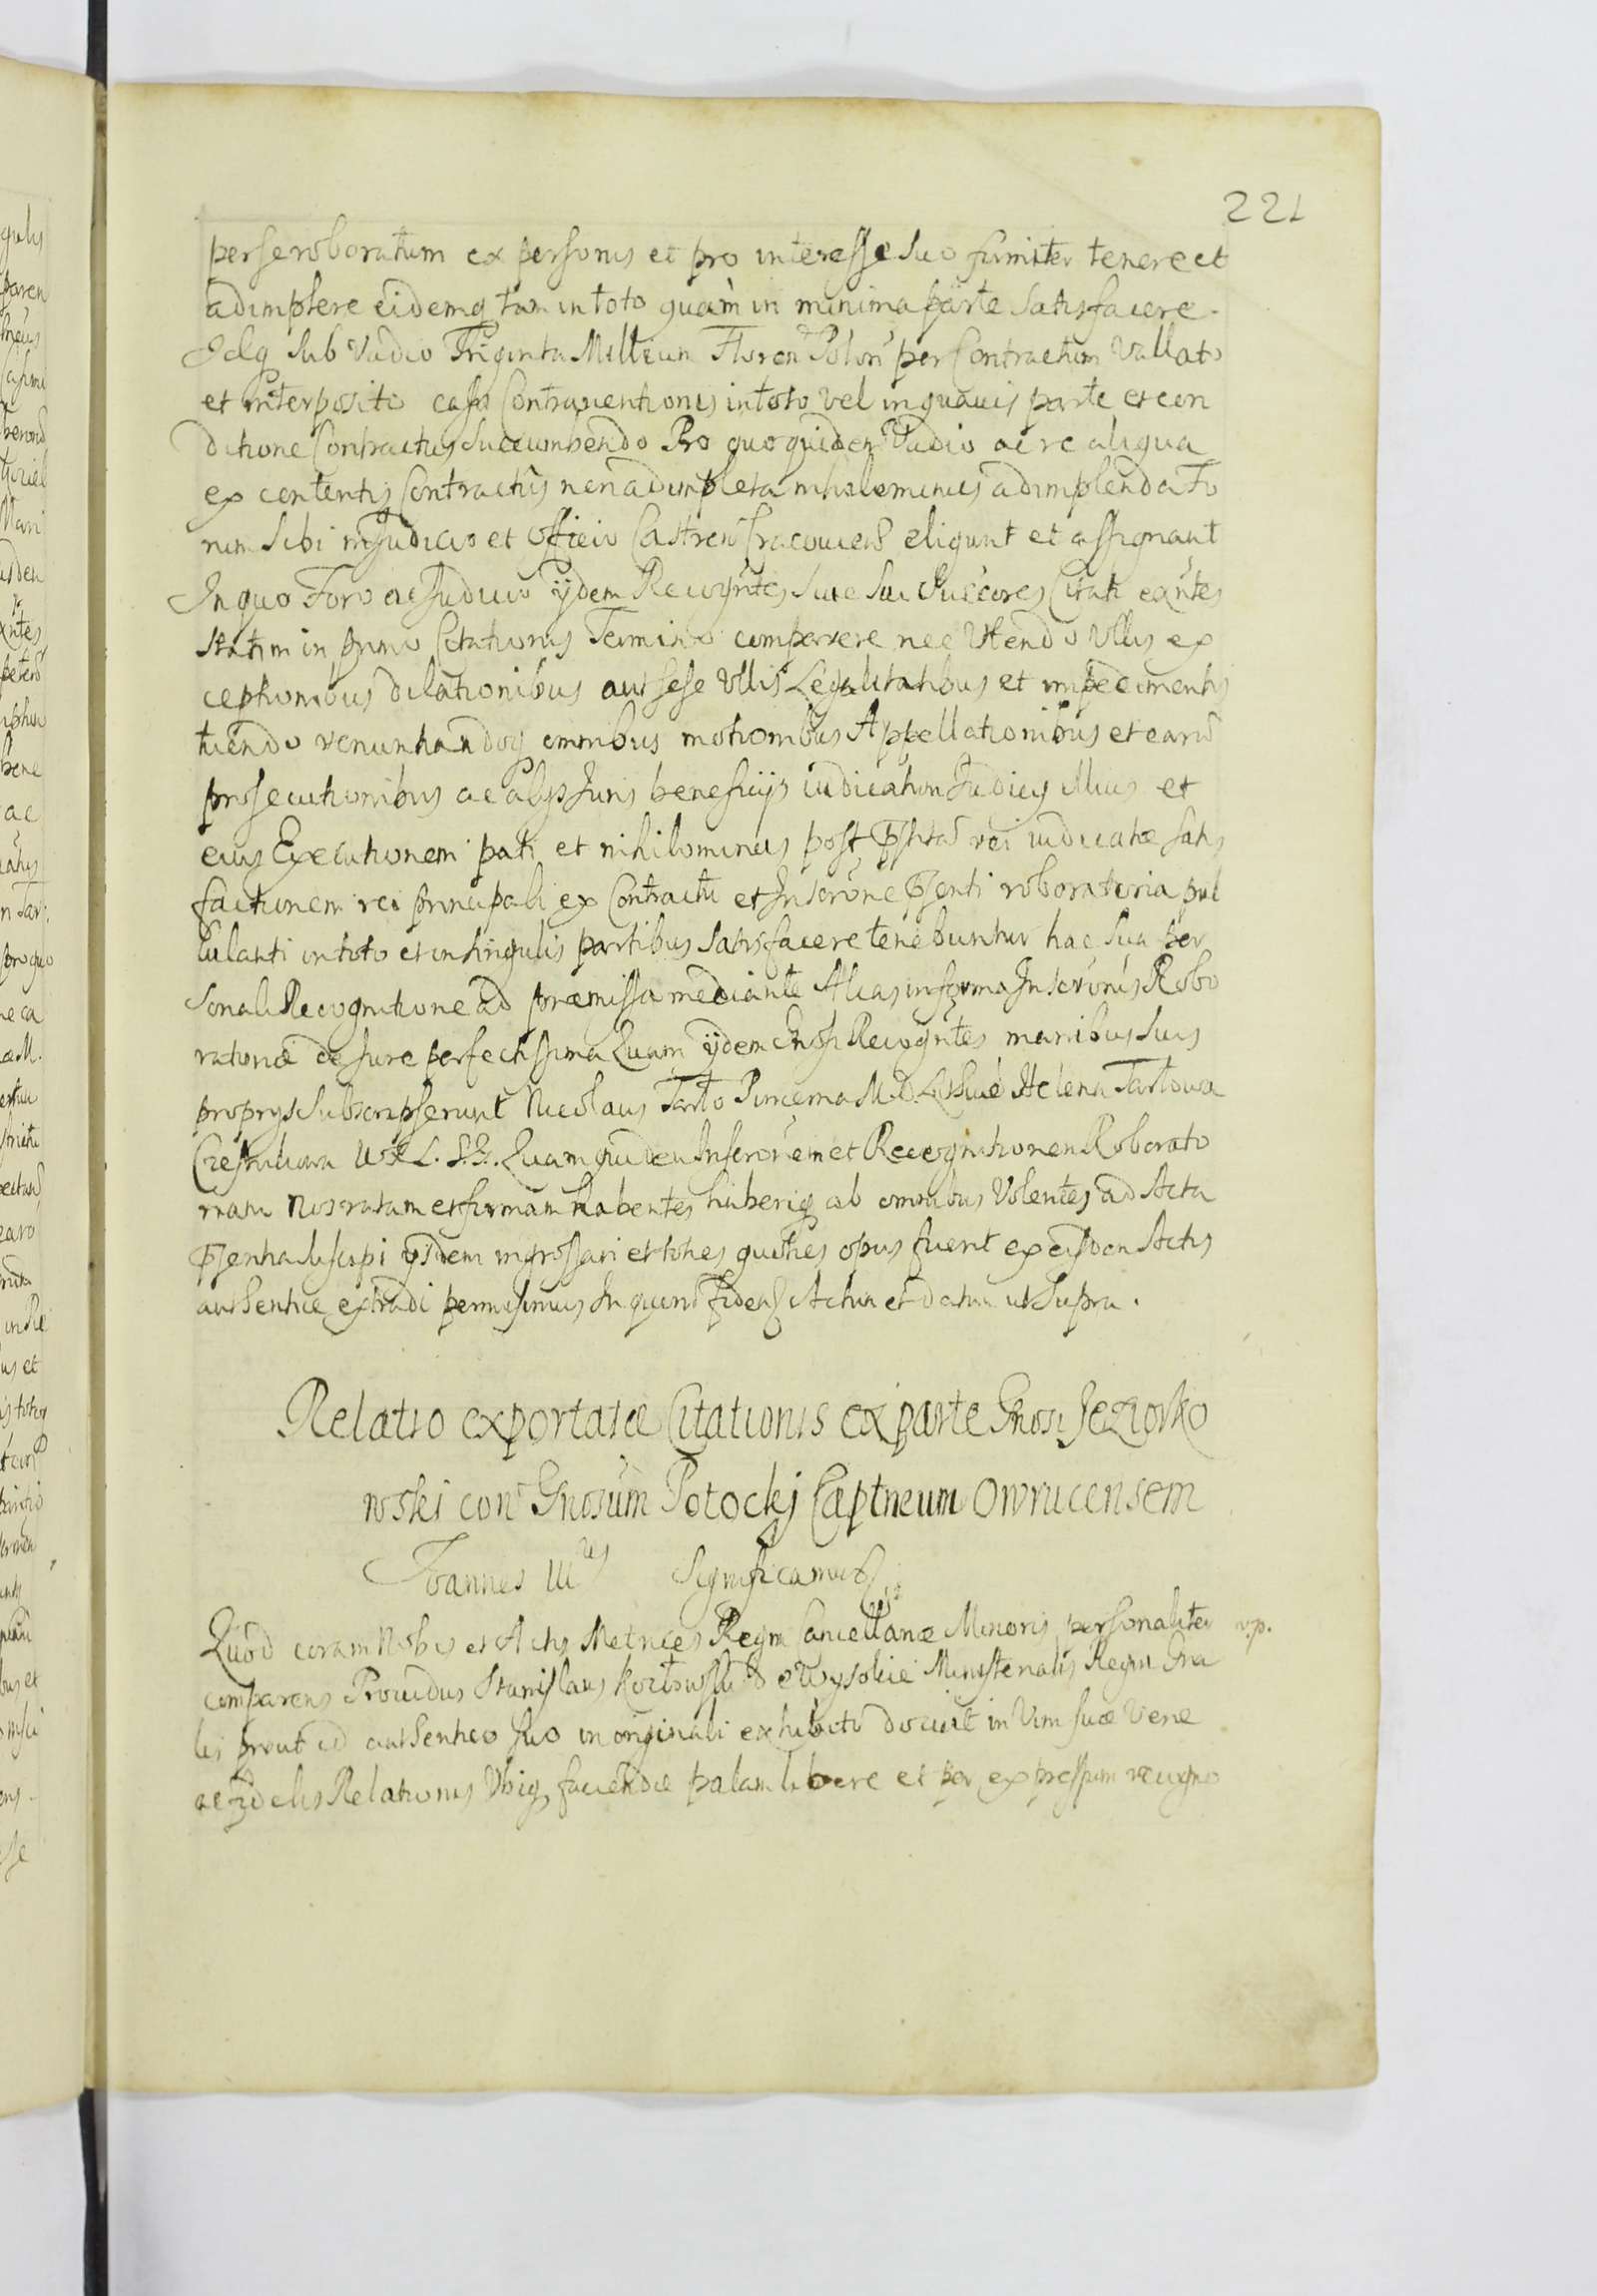 221
per se roboratum ex personis et pro interesse suo firmiter tenere et
adimplere eidemq tam in toto quam in minima parte satisfacere.
Idq sub Vadio Triginta Millium Floren Polon per Contractum Vallato
et interposito casu Contraventionis in toto vel in quavis parte et con
ditione Contractus succumbendo Pro quo quidem Vadio ac re aliqua
ex contentis Contractus non adimpleta nihilominus adimplenda Fo
rum sibi in Judicio et Officio Castren Cracovien eligunt et assignant
In quo Foro ac Judicio ijdem Recogntes sive sui Succores Citati exntes
statim in primo Citationis Termino comparere nec Utendo Ullis ex
ceptionibus dilationibus aut sese Ullis Legalitatibus et impedimentis
tuendo renuntiandoq omnibus motionibus Appellationibus et earu
prosecutionibus ac alijs Juris beneficijs iudicatum Judicij illius et
eius Executionem pati et nihilominus post rei iudicatæ satis
factionem rei principali ex Contractu et Inscrone roboratoria pul
lulanti in toto et in singulis partibus satisfacere tenebuntur hac sua per
sonali Recognitione ad præmissa mediante Alias in forma Inscronis Robo
rationæ de Jure perfectissima Quam ijdem Gnosi Recogntes manibus suis
proprijs subscripserunt Nicolaus Tarło Pincerna M. D. L. Helena Tarłowa
Quam quidem Inscronem et Recognitionem Roborato
riam Nos ratam et firmam habentes haberiq ab omnibus Volentes ad Acta
suscipi ijsdem ingrossari et toties quoties opus fuerit ex eisdem Actis
authentice extradi permisimus In quoru fidem Actum et datum ut supra.
Relatio exportatæ Citationis ex parte Gnosi Jeziorko
wski con Gnosum Potockj Captneum Owrucensem
Joannes III Significamus
Quod coram Nobis et Actis Metrices Regni Cancellariæ Minoris personaliter n. p.
comparens Providus Stanislaus de Wysokie Ministerialis Regni Gna
lis prout id authentico suo in originali exhibito docuit in Vim suæ Veræ
ac fidelis Relationis Ubiq faciendæ palam libere et per expressum recogno